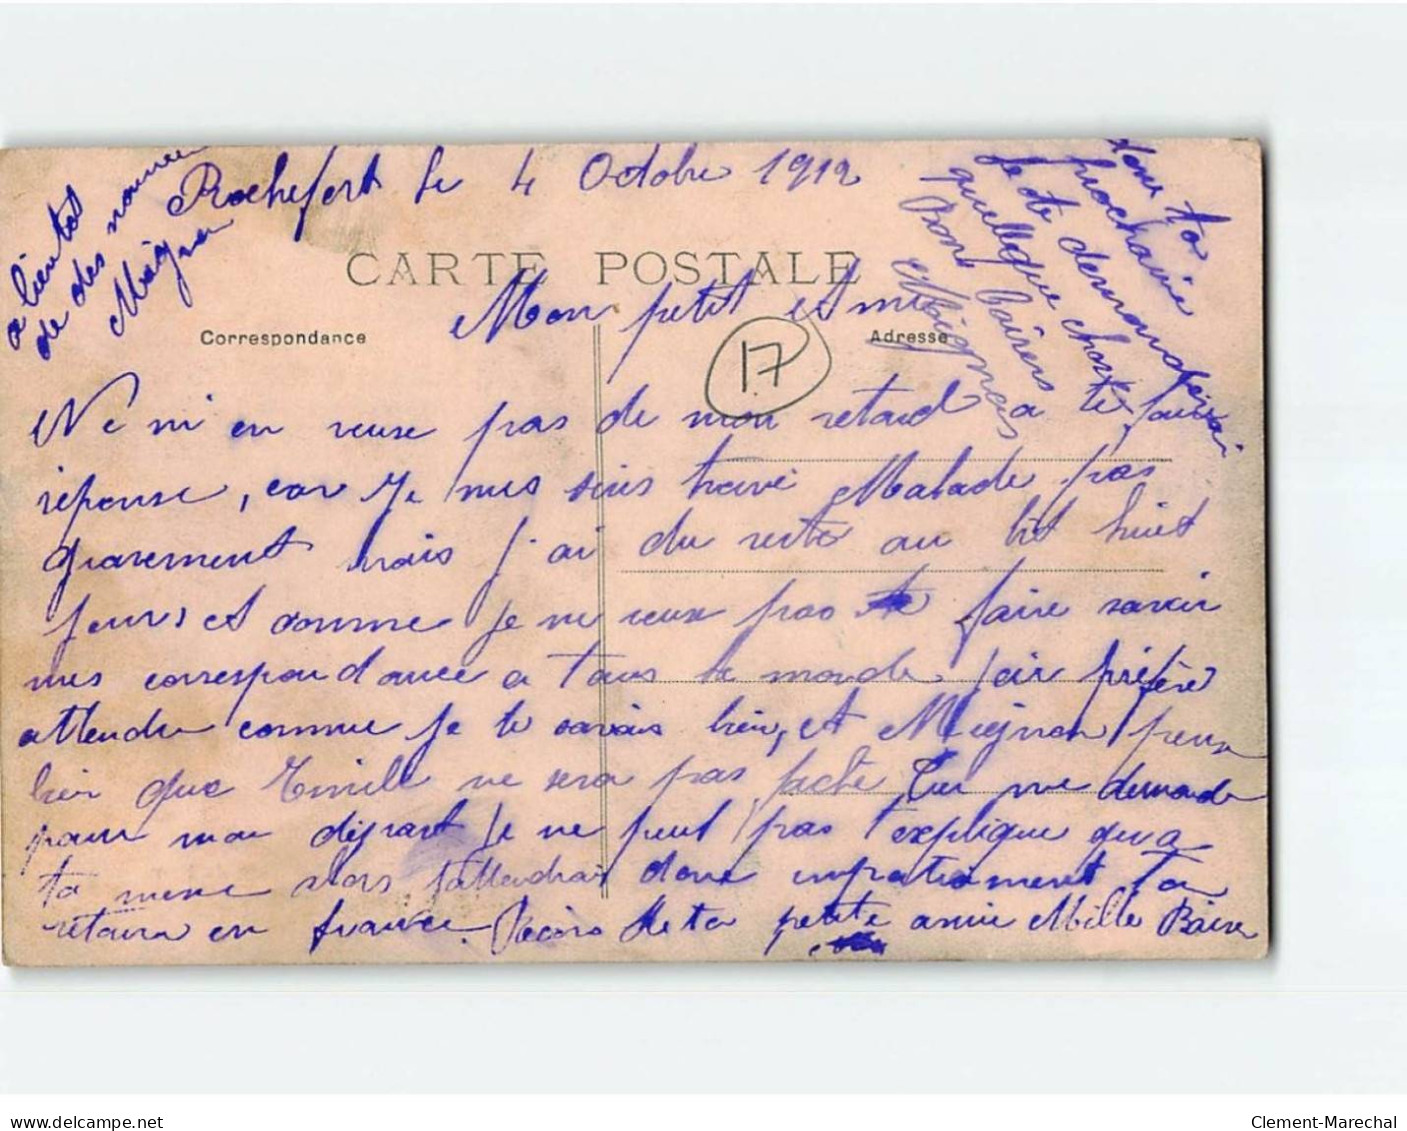 Rochefort le 4 Octobre 1912
CARTE POSTALE
Mon petit Ami
Correspondance
Adresse
17
Ne m en veux pas de mon retard a te faire
réponse, car Je me suis trouvé Malade pas
gravement mais j'ai du resté au lit huit
jours et comme je ne veux pas faire savoir
mes correspondance a tous le monde j'ai préféré
attendre comme je te savais bien, et Mignon pense
bien que Emile ne sera pas faché Tu me demande
pour mon départ Je ne peut pas t'explique qua
ta venue alors j'attendrai donc impatiament ton
retour en france. Reçois de ta petite amie Mille Baiser
a bientot
de des nouvelle
Mignon
dans ta
prochaine
Je te demanderai
quellque chose
Bons baisers
Mignon
www.delcampe.net
Clement-Marechal